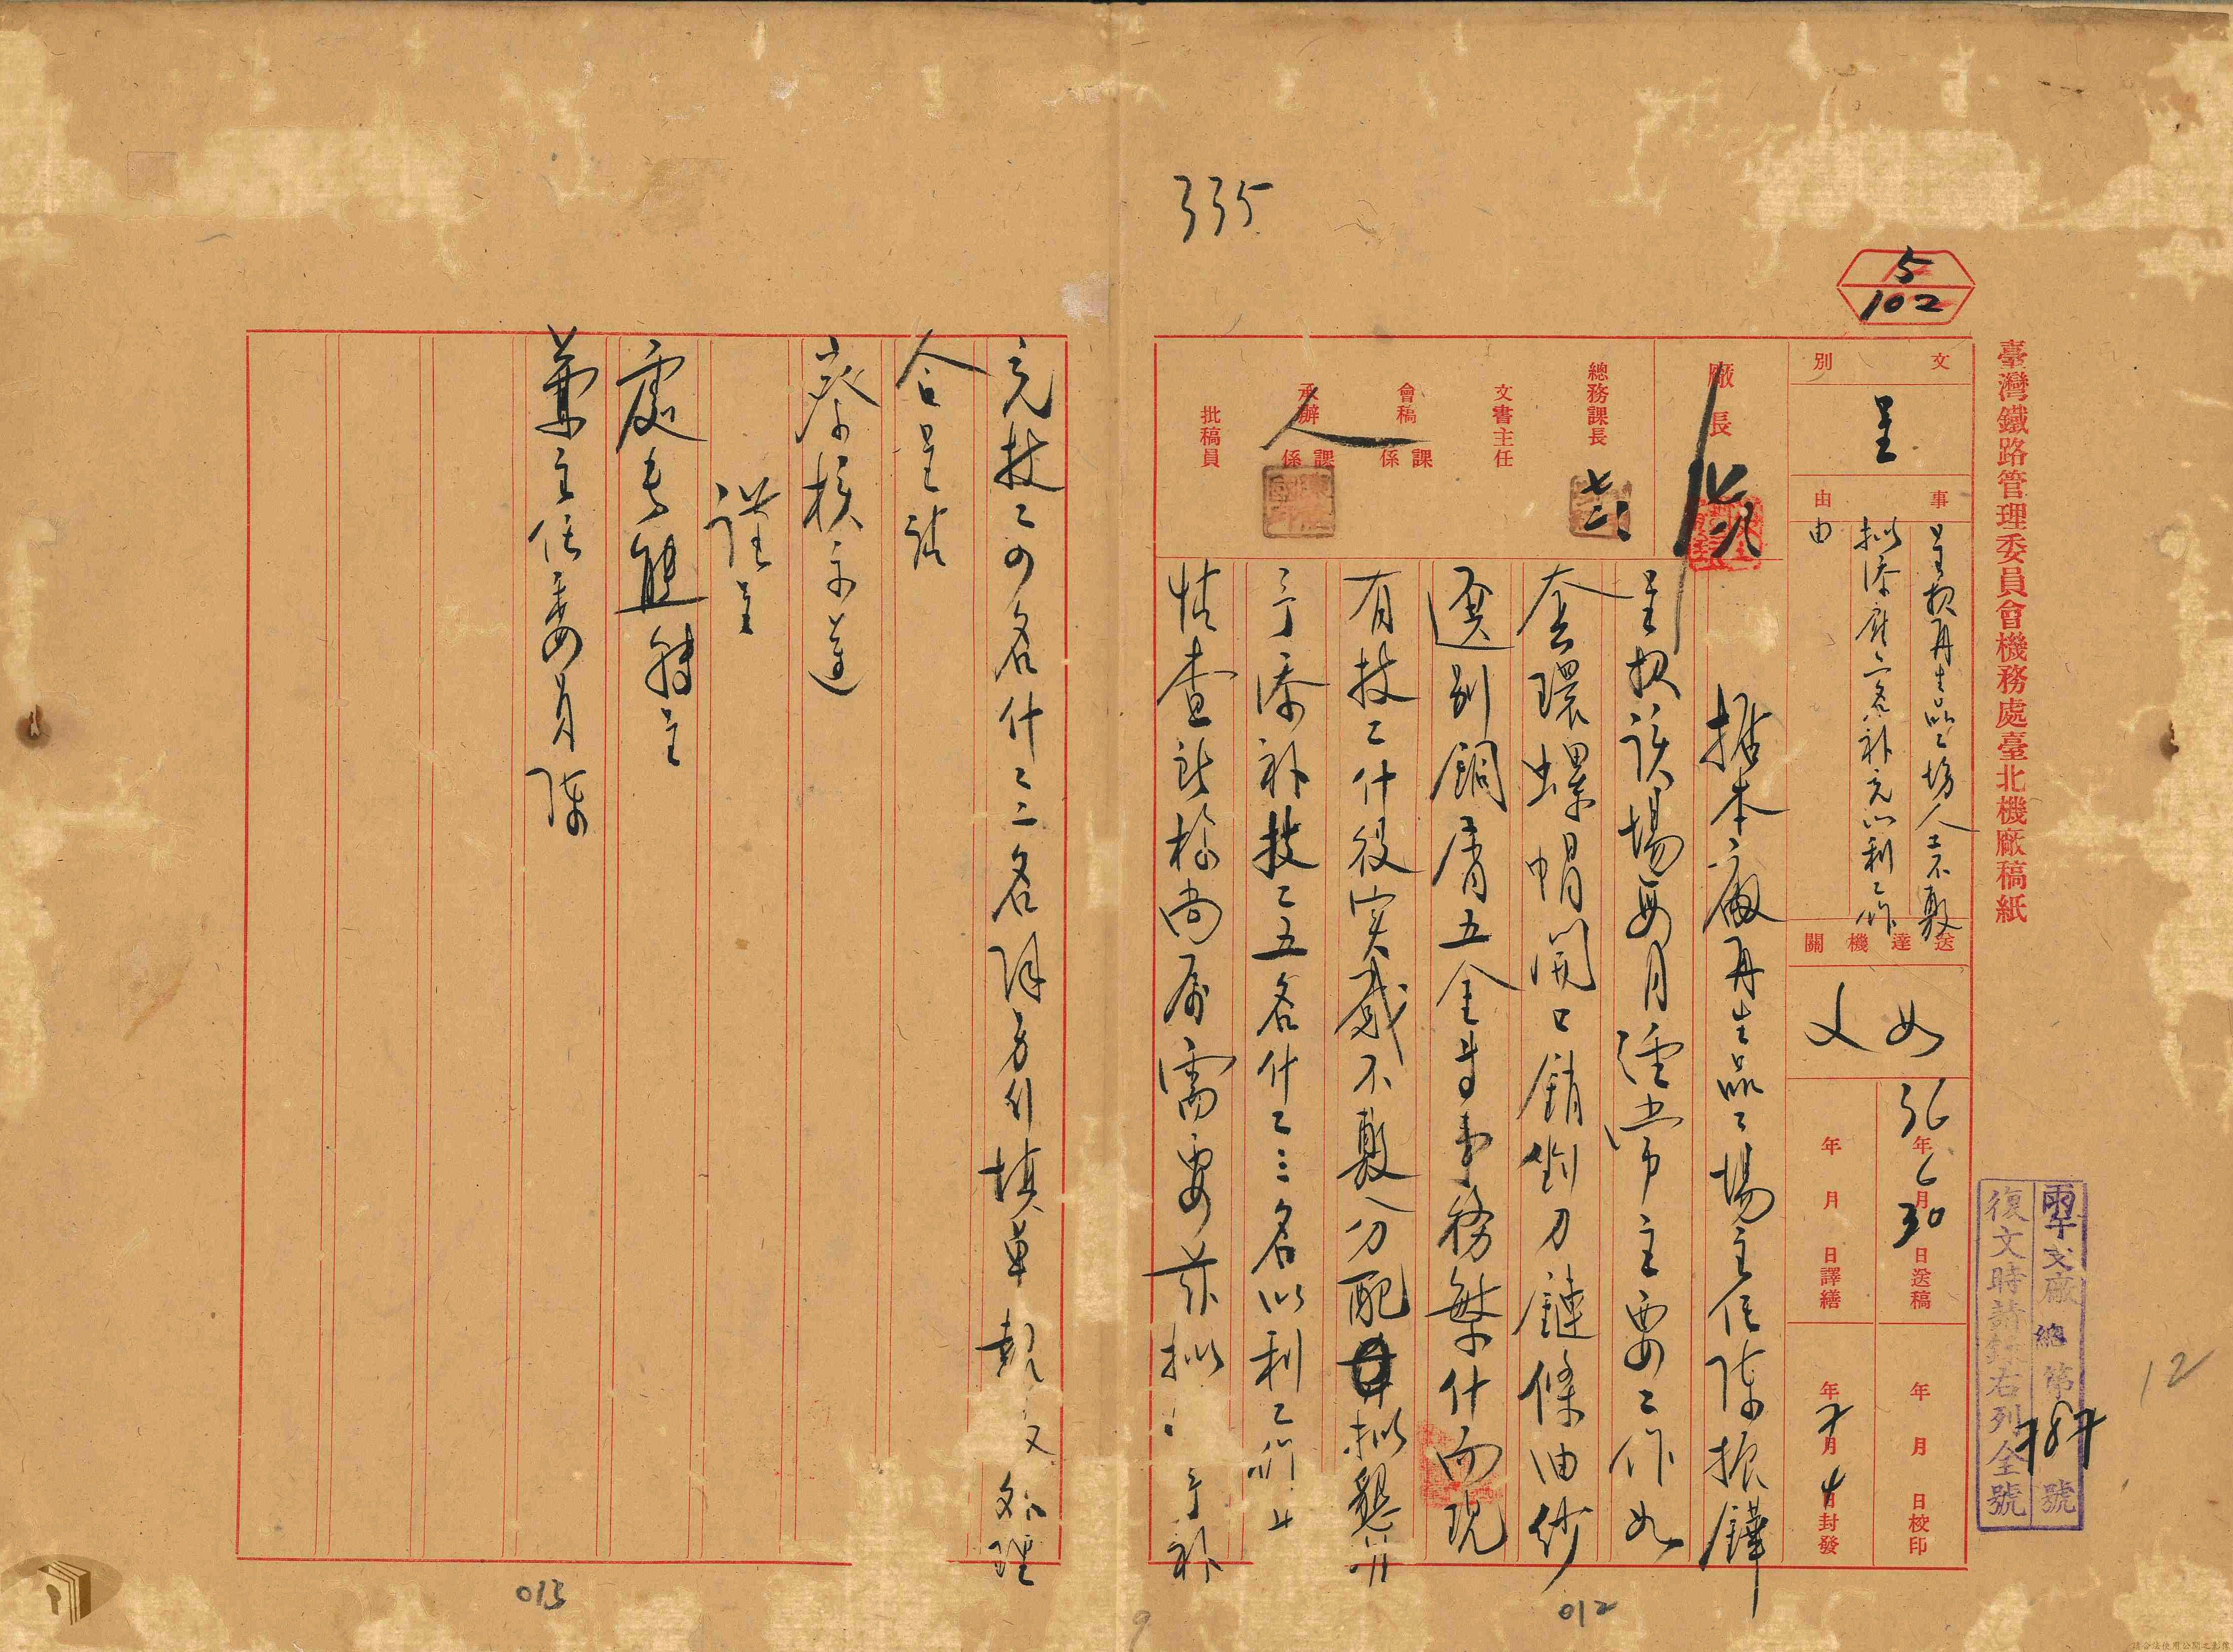 335
5
102
臺灣鐵路管理委員會機務處臺北機廠稿紙
文別
呈
事由
呈报再生品工場人工不敷
拟添雇二名补充以利工作
由
送達機關
如文
36年6月30日送稿
年月日譯繕
年月日校印
年7月4日封發
廠長
總務課長
七二
文書主任
會稿
課係
承辦
課係
批稿員
廠總第號
復文時請錄右列全號
12
据本廠再生品工場主任陳振鏵
呈报该場每月經常主要工作如
套環螺帽開口銷鉤刀鏈條油紗
選別銅屑五金等事務繁什而現
有技工什役实感不敷分配拟懇
予添补技工五名什工三名以利工作
情查所称尚属需要兹拟予补
充技工四名什工二名除另行填单报处理
合呈請
察核示遵
謹呈
處長
兼主任委員陳
012
013
9